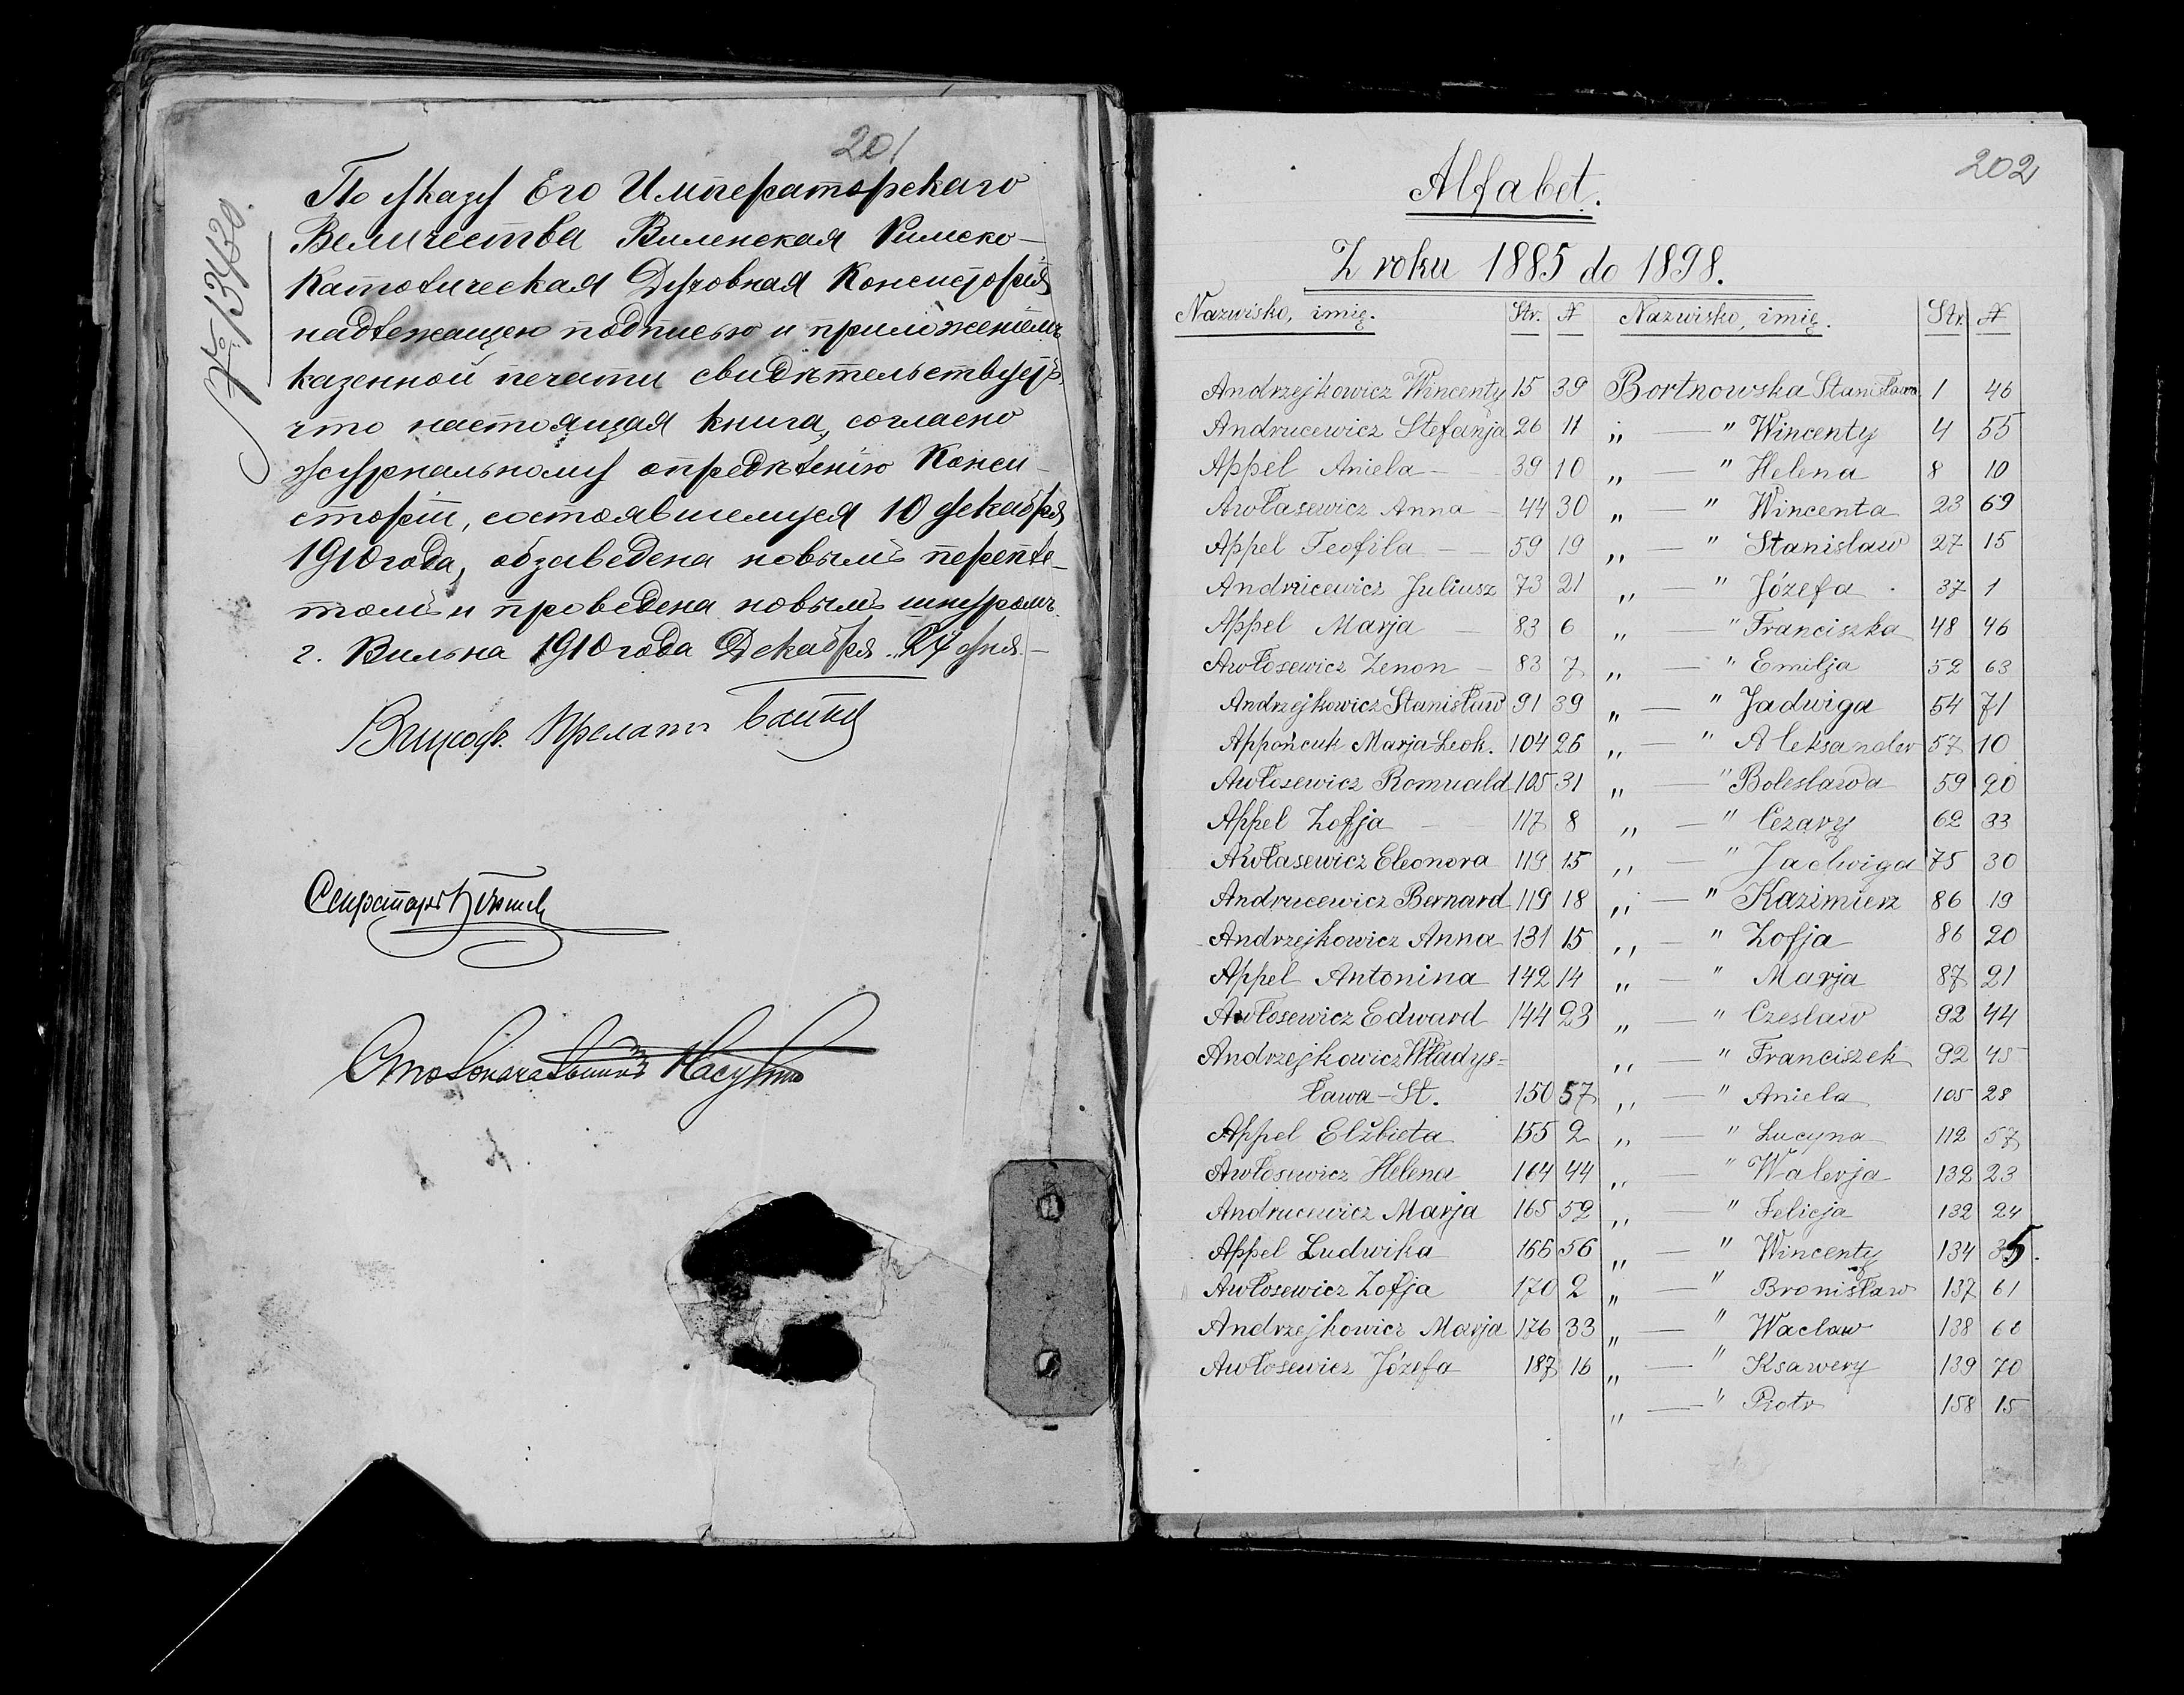 201
№ 13430.
По указу Его Императорскаго
Величества Виленская Римско-
Католическая Духовная Консисторія
надлежащею подписью и приложеніемъ
казенной печати свидѣтельствуетъ,
что настоящая книга, согласно
журнальному опредѣленію Конси-
сторіи, состоявшемуся 10 декабря
1910 года, обзаведена новымъ перепле-
томъ и проведена новымъ шнуромъ.
г. Вильна 1910 года Декабря 24 дня.
Вицеоф. Прелатъ
Секретарь
Столоначальникъ
202
Alfabet.
Z roku 1885 do 1898.
Nazwisko, imię. Str. № Nazwisko, imię. Str. №
Andrzejkowicz Wincenty 15 39 Bortnowska Stanisława 1 46
Andrucewicz Stefanja 26 11 „ — " Wincenty 4 55
Appel Aniela — 39 10 „ — " Helena 8 10
Awłasewicz Anna — 44 30 „ — " Wincenta 23 69
Appel Teofila — 59 19 „ — " Stanisław 27 15
Andrucewicz Juliusz 73 21 „ — " Józefa 37 1
Appel Marja — 83 6 „ — " Franciszka 48 46
Awłosewicz Zenon — 83 7 „ — " Emilja 52 63
Andrzejkowicz Stanisław 91 39 „ — " Jadwiga 54 71
Appończuk Marja-Leok. 104 26 „ — " Aleksander 57 10
Awłosewicz Romuald 105 31 „ — " Bolesława 59 20
Appel Zofja — 117 8 „ — " Cezary 62 33
Awłasewicz Eleonora 119 15 „ — " Jadwiga 75 30
Andrucewicz Bernard 119 18 „ — " Kazimierz 86 19
Andrzejkowicz Anna 131 15 „ — " Zofja 86 20
Appel Antonina 142 14 „ — " Marja 87 21
Awłosewicz Edward 144 23 „ — " Czesław 92 44
Andrzejkowicz Władys= „ — " Franciszek 92 45
ława-St. 150 57 „ — " Aniela 105 28
Appel Elżbieta 155 2 „ — " Lucyna 112 57
Awłosewicz Helena 164 44 „ — " Walerja 132 23
Andrucewicz Marja 165 52 „ — " Felicja 132 24
Appel Ludwika 166 56 „ — " Wincenty 134 35.
Awłosewicz Zofja 170 2 „ — " Bronisław 137 61
Andrzejkowicz Marja 176 33 „ — " Wacław 138 66
Awłosewicz Józefa 187 16 „ — " Ksawery 139 70
„ — " Piotr 158 15